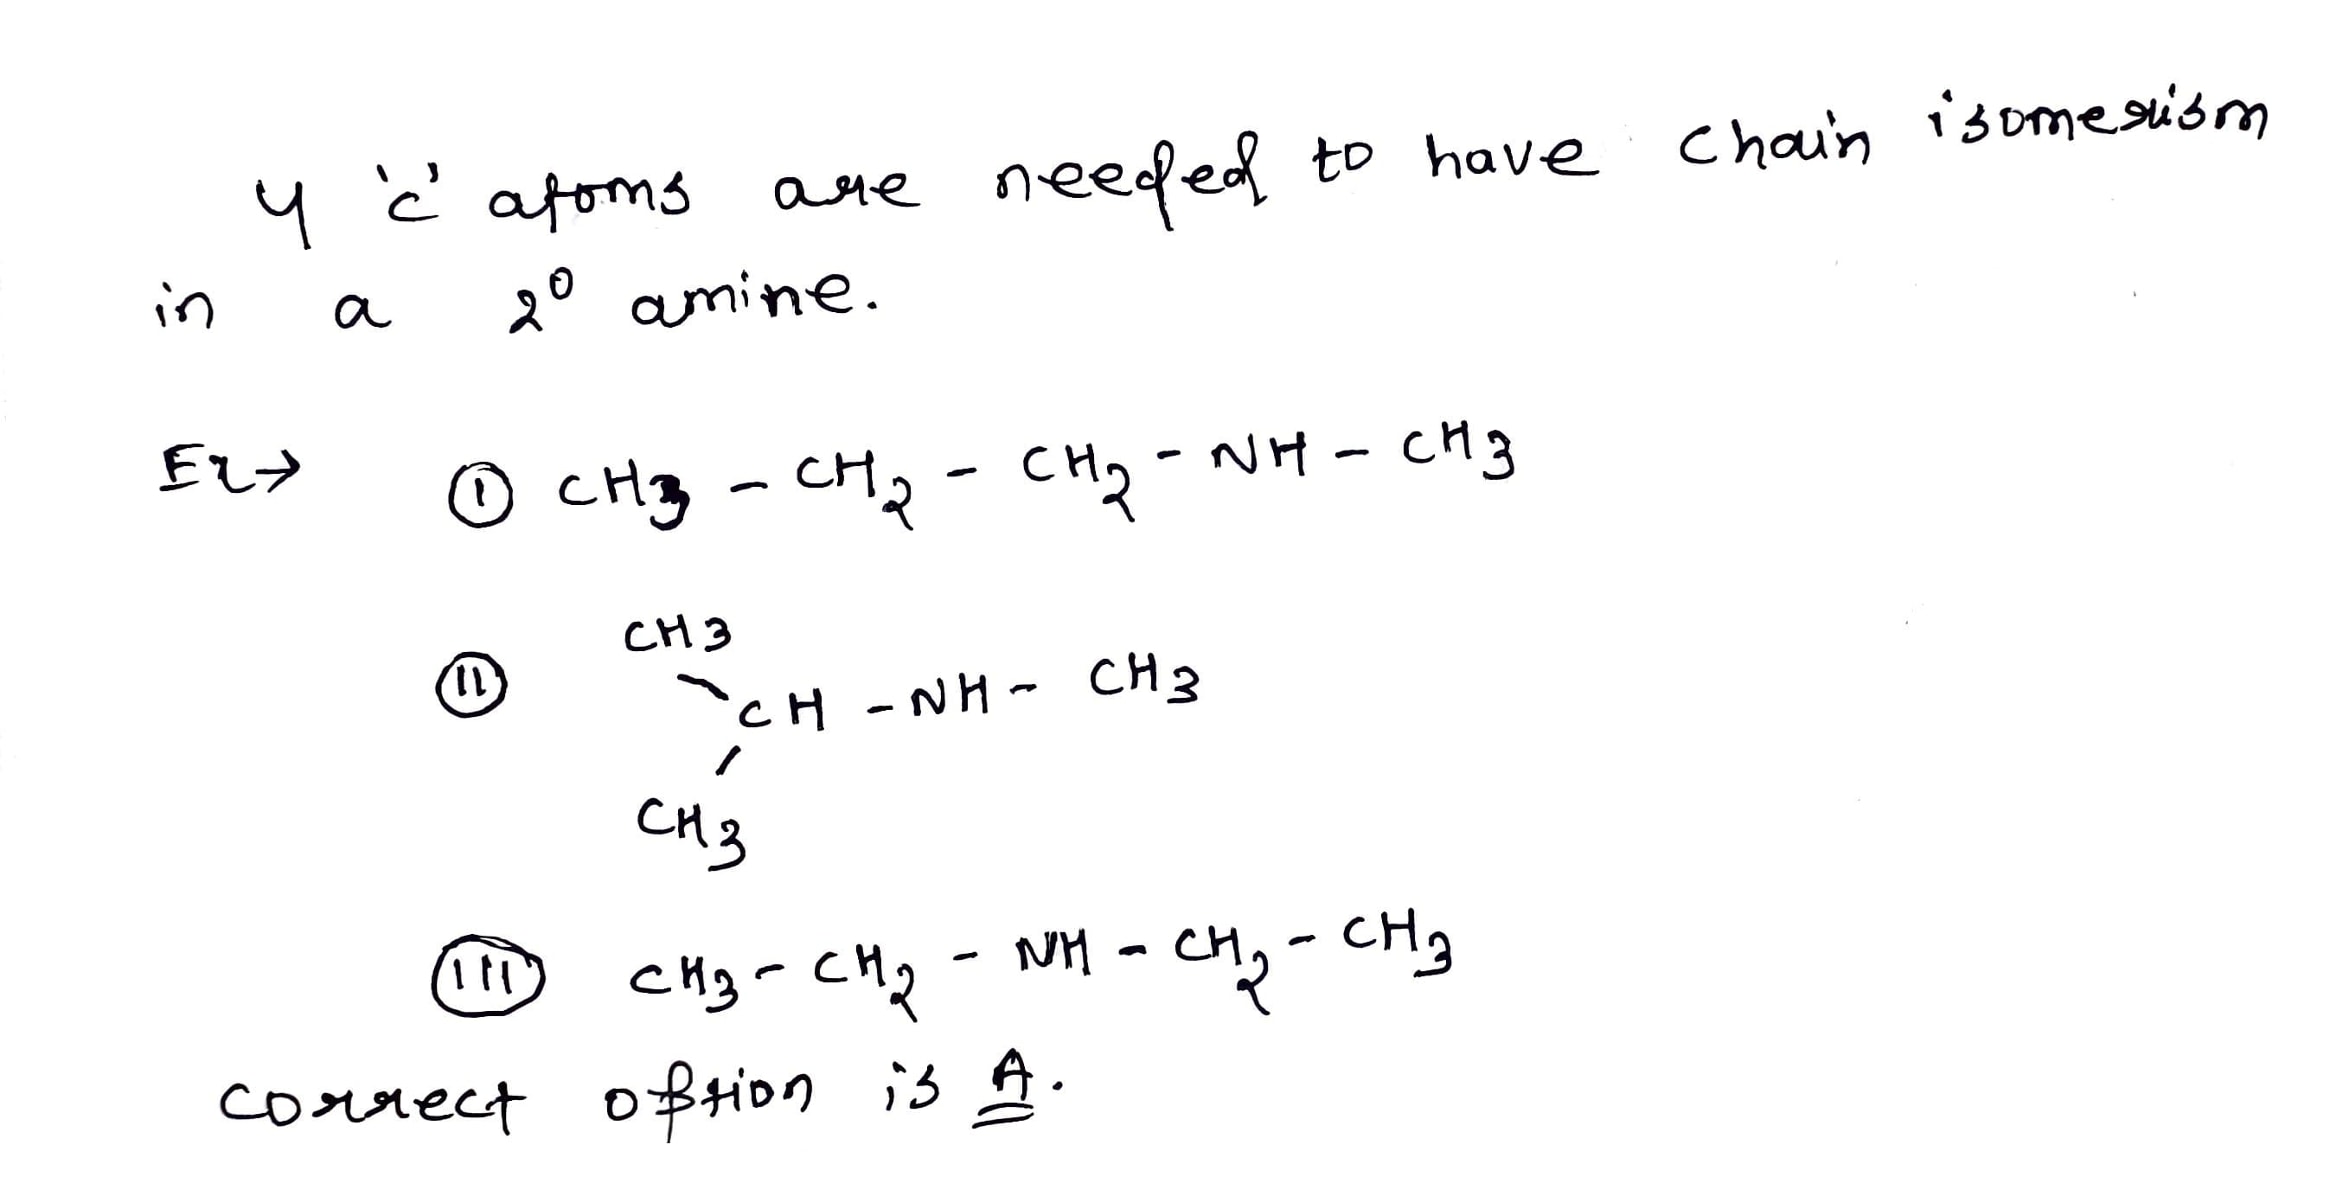 4 'c' atoms are needed to have chain isomerism
in a 2⁰ amine.
Ex→ (I) CH3 - CH2 - CH2 - NH - CH3
(II) CH3
CH - NH - CH3
CH3
(III) CH3 - CH2 - NH - CH2 - CH3
correct option is A.